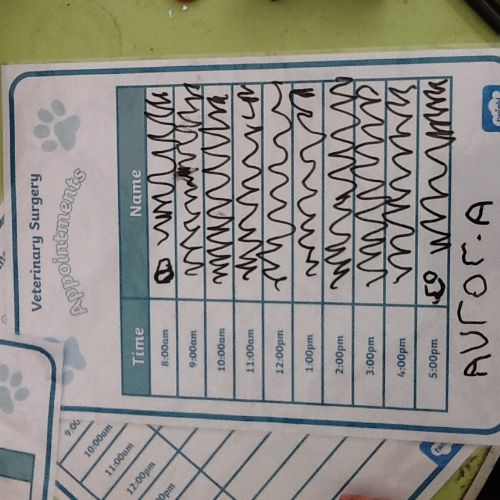 Veterinary Surgery
Appointments
Time Name
8:00am
9:00am
10:00am
11:00am
12:00pm
1:00pm
2:00pm
3:00pm
4:00pm
5:00pm
AUror.A
twinkl
10:00am
11:00am
12:00pm